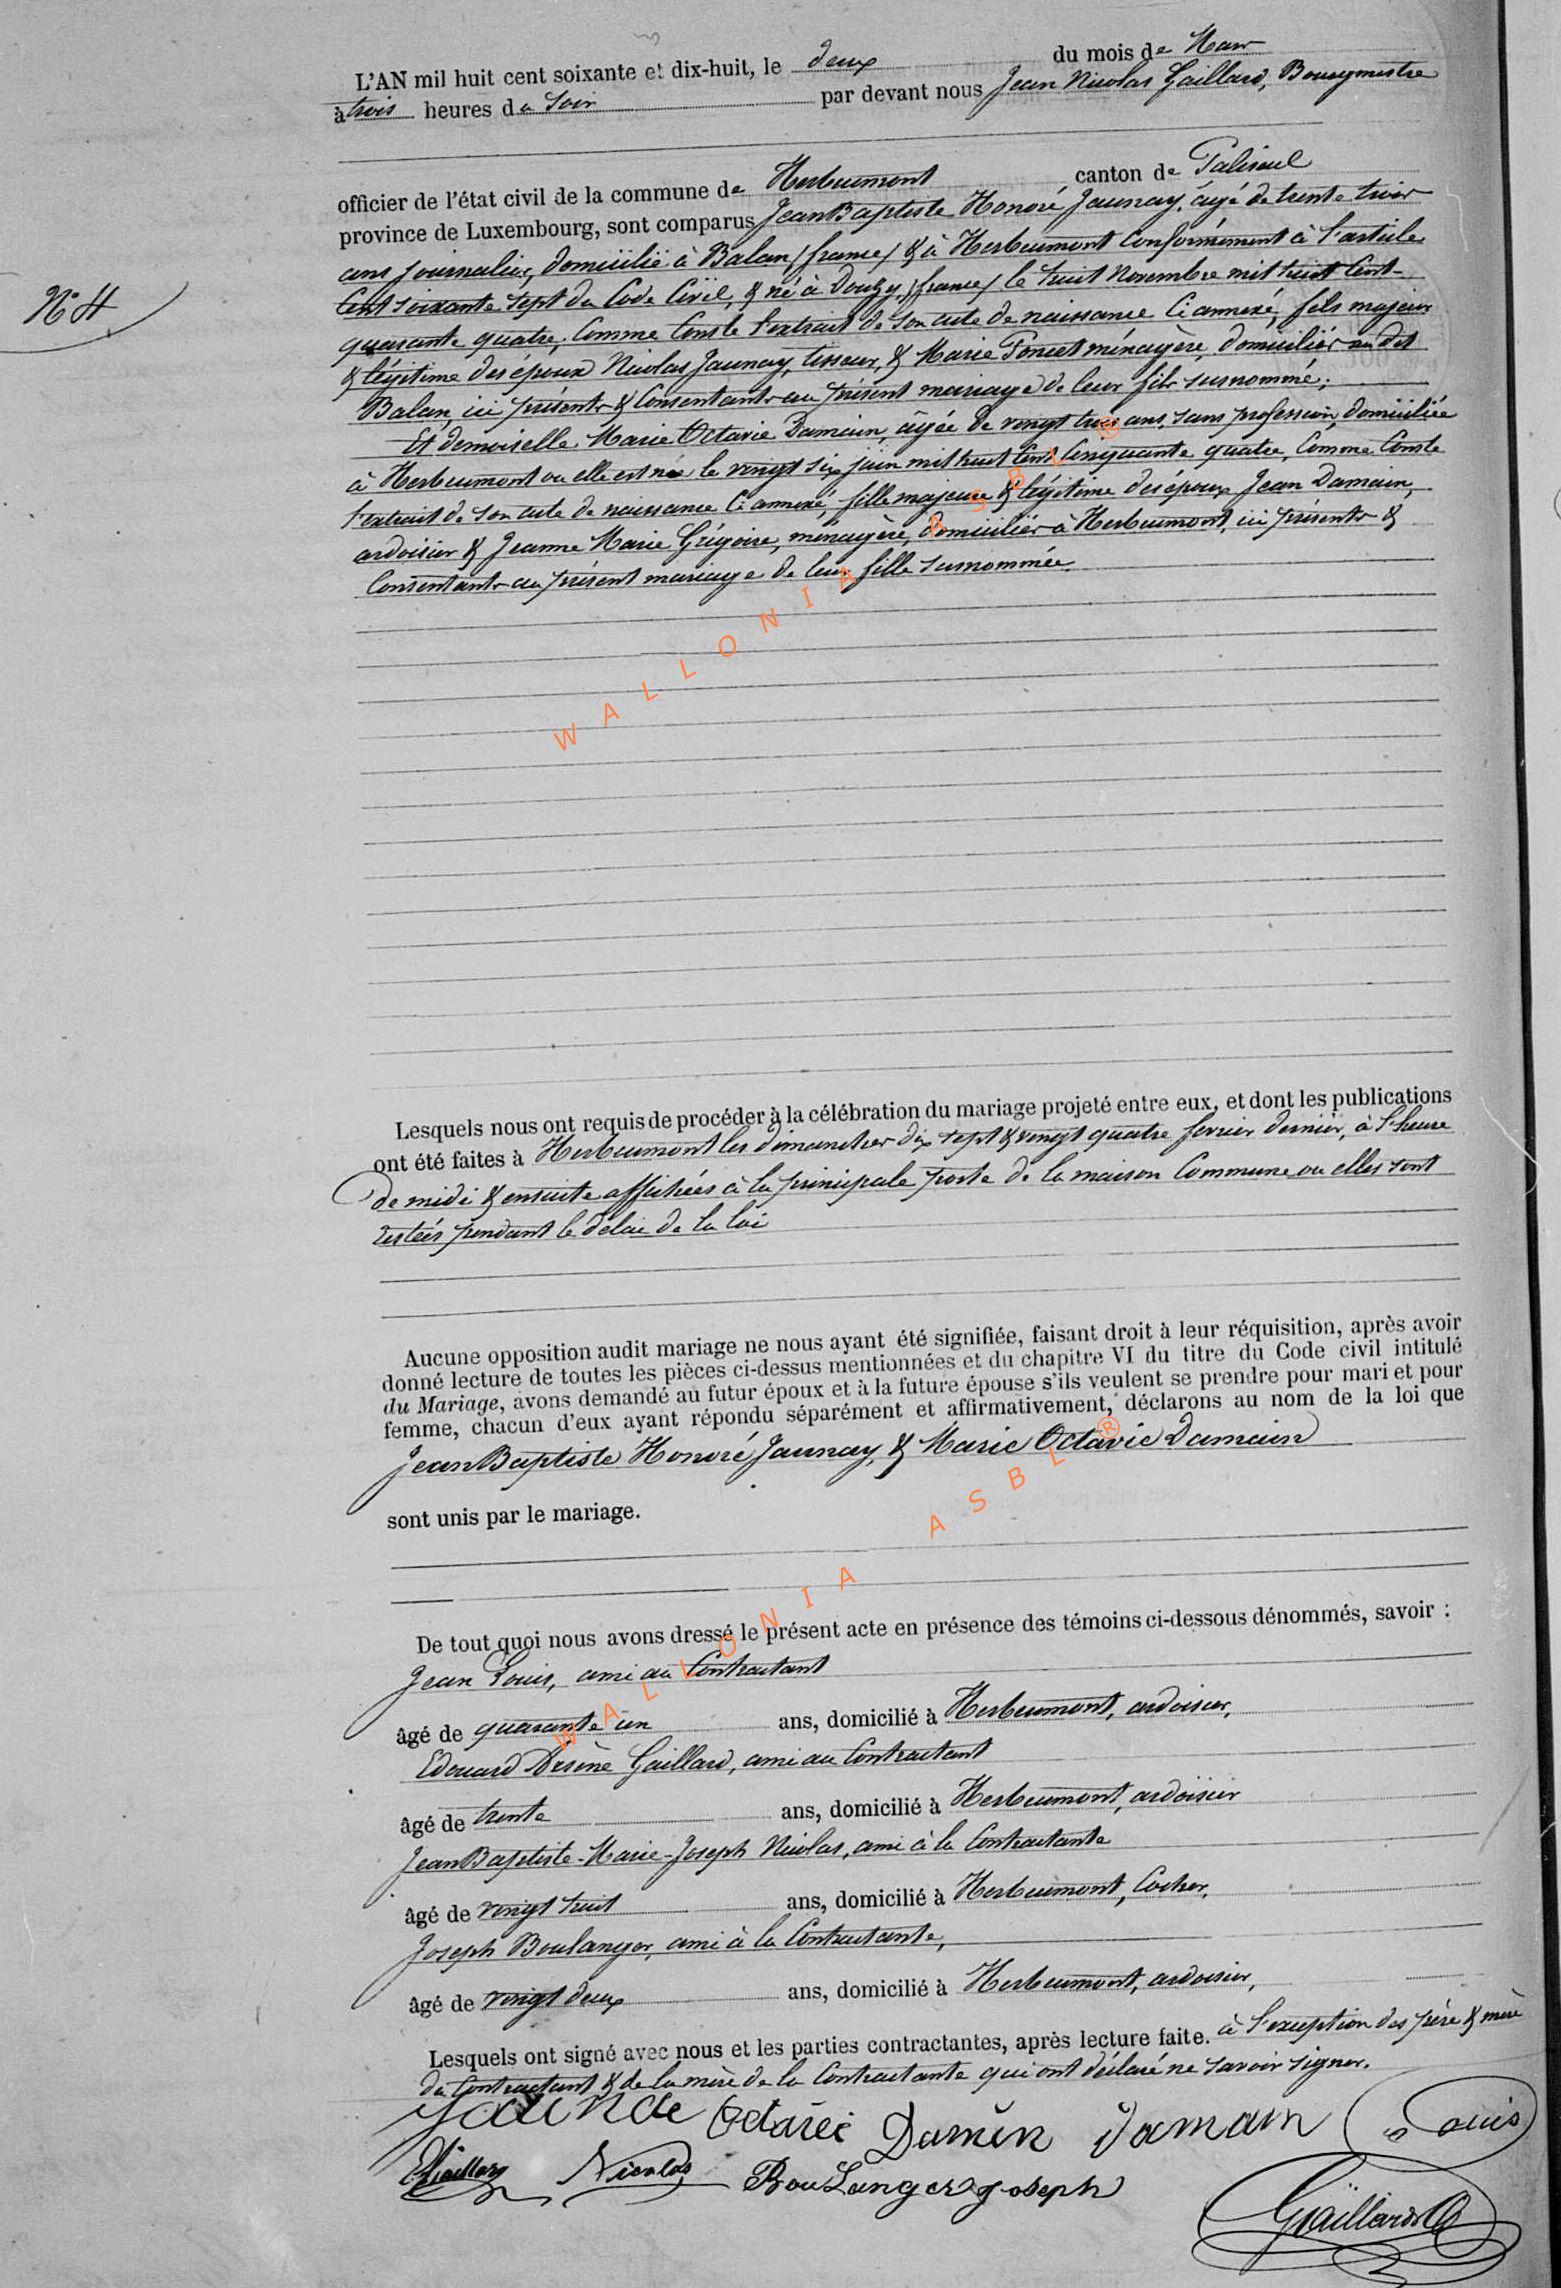 L'AN mil huit cent soixante et dix-huit, le deux du mois de Mars
à trois heures du soir par devant nous Jean Nicolas Gaillard, Bourgmestre
officier de l'état civil de la commune de Herbeumont canton de Paliseul
province de Luxembourg, sont comparus Jean Baptiste Honoré Jaunay, âgé de trente trois
ans journalier, domicilié à Balan (france) & à Herbeumont Conformément à l'article
Cent soixante sept du Code Civil, & né à Douzy (france) le huit Novembre mil huit Cent
N° 4
quarante quatre, Comme Conste l'extrait de son acte de naissance Ci annexé, fils majeur
& légitime des époux Nicolas Jaunay, tisseur, & Marie Poncet ménagère, domiciliés au dit
Balan, ici présents & Consentants au présent mariage de leur fils surnommé;
Et demoiselle Marie Octavie Damain, âgée de vingt trois ans, sans profession, domiciliée
à Herbeumont ou elle est née le vingt six juin mil huit Cent Cinquante quatre, Comme Conste
l'extrait de son acte de naissance Ci annexé, fille majeure & légitime des époux Jean Damain,
ardoisier & Jeanne Marie Grégoire, ménagère, domiciliés à Herbeumont, ici présents &
Consentants au présent mariage de leur fille surnommée.
WALLONIA ASBL ®
Lesquels nous ont requis de procéder à la célébration du mariage projeté entre eux, et dont les publications
ont été faites à Herbeumont les dimanches dix sept & vingt quatre fevrier dernier, à l'heure
de midi & ensuite affichées à la principale porte de la maison Commune ou elles sont
restées pendant le délai de la loi
Aucune opposition audit mariage ne nous ayant été signifiée, faisant droit à leur réquisition, après avoir
donné lecture de toutes les pièces ci-dessus mentionnées et du chapitre VI du titre du Code civil intitulé
du Mariage, avons demandé au futur époux et à la future épouse s'ils veulent se prendre pour mari et pour
femme, chacun d'eux ayant répondu séparément et affirmativement, déclarons au nom de la loi que
Jean Baptiste Honoré Jaunay, & Marie Octavie Damain
sont unis par le mariage.
WALLONIA ASBL ®
De tout quoi nous avons dressé le présent acte en présence des témoins ci-dessous dénommés, savoir :
Jean Louis, ami au Contractant
âgé de quarante un ans, domicilié à Herbeumont, ardoisier,
Edouard Arsène Gaillard, ami au Contractant
âgé de trente ans, domicilié à Herbeumont, ardoisier
Jean Baptiste-Marie-Joseph Nicolas, ami à la Contractante
âgé de vingt huit ans, domicilié à Herbeumont, Cocher,
Joseph Boulanger, ami à la Contractante,
âgé de vingt deux ans, domicilié à Herbeumont, ardoisier,
Lesquels ont signé avec nous et les parties contractantes, après lecture faite. à l'exception des père & mère
du Contractant & de la mère de la Contractante qui ont déclaré ne savoir signer.
Octavie Damin Damain Louis
EGaillard Nicolas Boulanger joseph
Gaillard